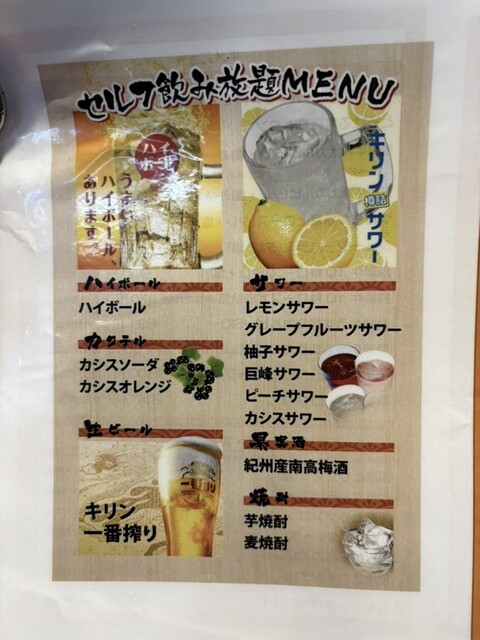 セルフ飲み放題MENU
ハイ
ボール
うまい、
ハイボール、
あります。
キリン
樽詰
サワー
ハイボール
ハイボール
カクテル
カシスソーダ
カシスオレンジ
生ビール
一番搾り
キリン
一番搾り
サワー
レモンサワー
グレープフルーツサワー
柚子サワー
巨峰サワー
ピーチサワー
カシスサワー
果実酒
紀州産南高梅酒
焼酎
芋焼酎
麦焼酎